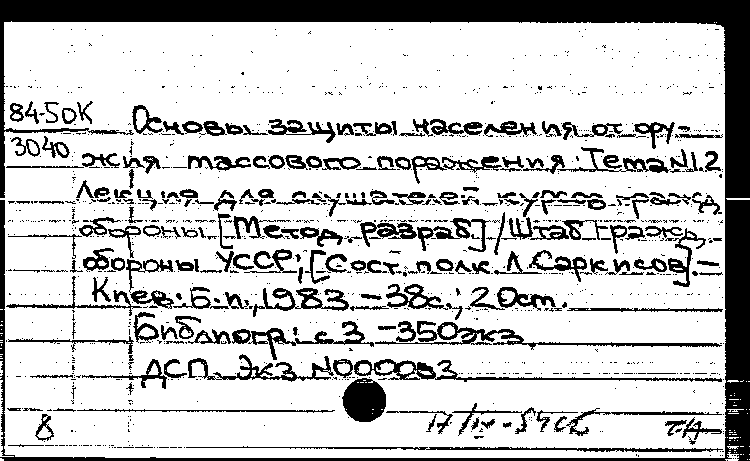 84-5ДК
3040
Основы защиты населения от ору-
жия массового поражения: Тема N12
Лекция для слушателей курсов гражд.
обороны [Метод. разраб] / Штаб гражд.
обороны УССР; [Сост. полк. Л. Саркисов]. —
Киев: Б. и., 1983. — 38с.; 20cm.
Библиогр: с 3 — 350экз.
ДСП. Экз N000053
8